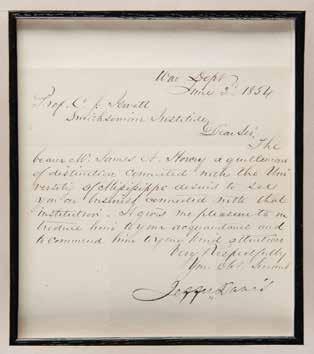 War Dept
June 2d 1854
Prof. C. C. Jewett
Smithsonian Institute
Dear Sir.
The
bearer Mr. James A. a gentleman
of distinction connected with the Uni
versity of Missisippi desires to see
you on business connected with that
institution. It gives me pleasure to in
troduce him to your acquaintance and
to commend him to your kind attention
Very Respectfully
Your Obt. Servant
Jeffn. Davis